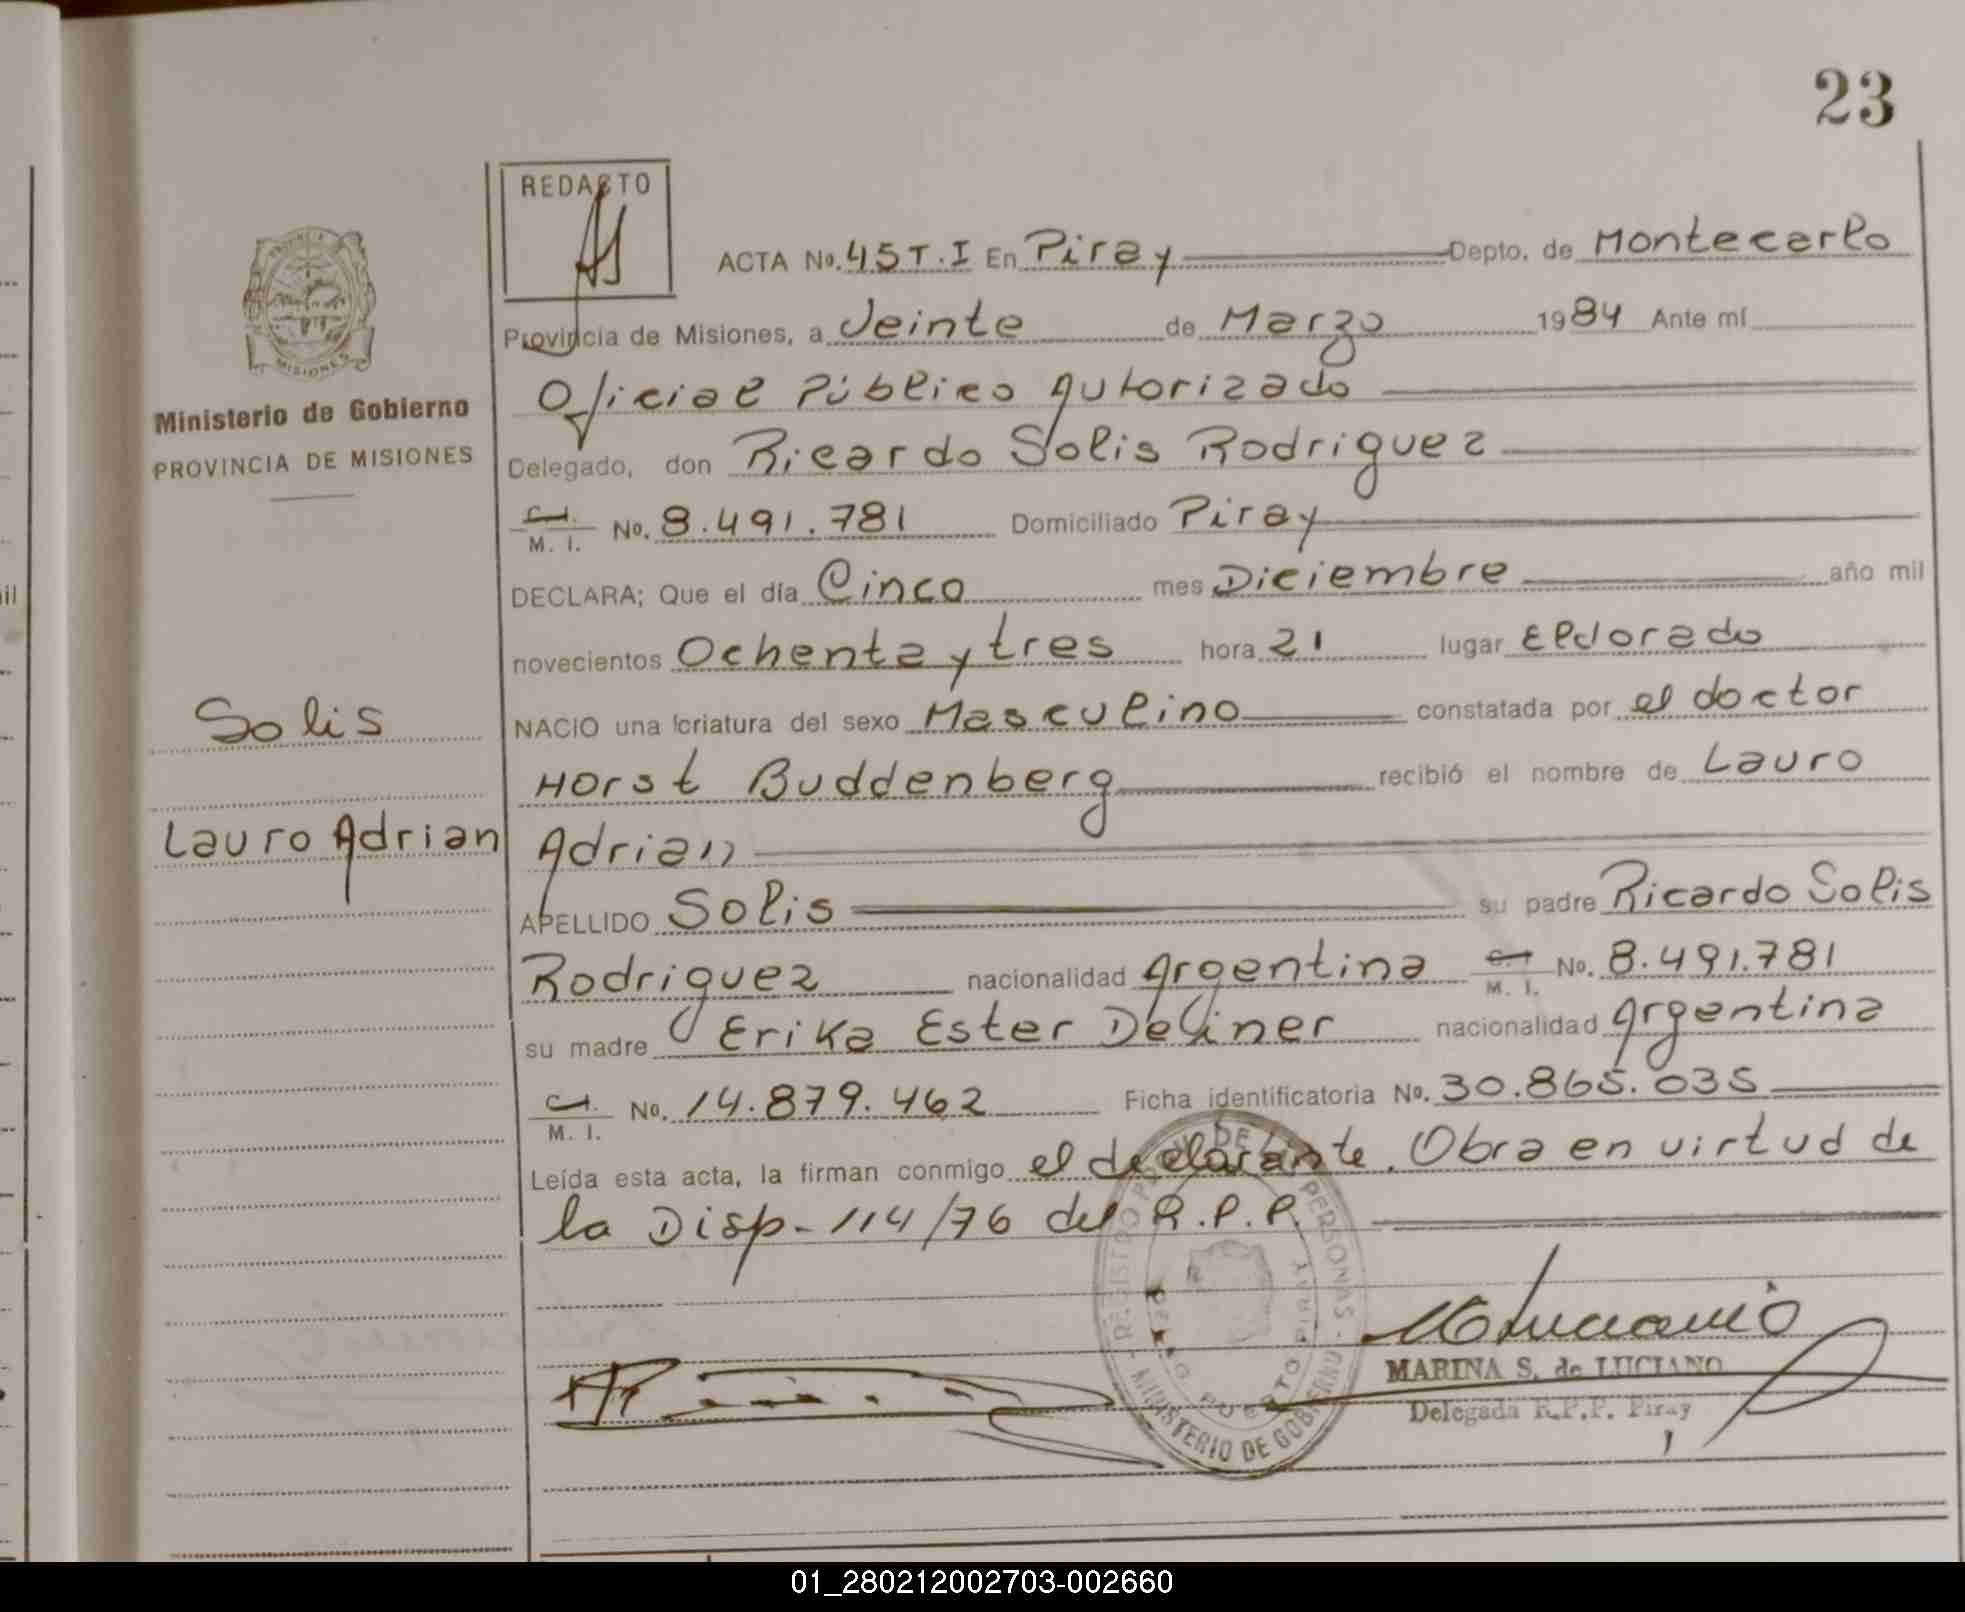 23
REDACTO
ACTA No. 45 T.I En Piray Depto. de Montecarlo
Provincia de Misiones, a Veinte de Marzo 1984 Ante mí
Oficial Público Autorizado
Delegado, don Ricardo Solis Rodriguez
C.I. M. I. No. 8.491.781 Domiciliado Piray
DECLARA; Que el día Cinco mes Diciembre año mil
novecientos Ochenta y tres hora 21 lugar Eldorado
NACIO una criatura del sexo Masculino constatada por el doctor
Horst Buddenberg recibió el nombre de Lauro
Adrian
APELLIDO Solis su padre Ricardo Solis
Rodriguez nacionalidad Argentina C.I. M. I. No. 8.491.781
su madre Erika Ester nacionalidad Argentina
C.I. M. I. No. 14.879.462 Ficha identificatoria No. 30.865.035
Leída esta acta, la firman conmigo el declarante. Obra en virtud de
la Disp- 114/76 del R.P.P.
MARINA S. de LUCIANO
Delegada R.P.P. Piray
PROVINCIA
MISIONES
Ministerio de Gobierno
PROVINCIA DE MISIONES
Solis
Lauro Adrian
REGISTRO DE PERSONAS - MINISTERIO DE GOBIERNO
PUERTO PIRAY
il
01_280212002703-002660